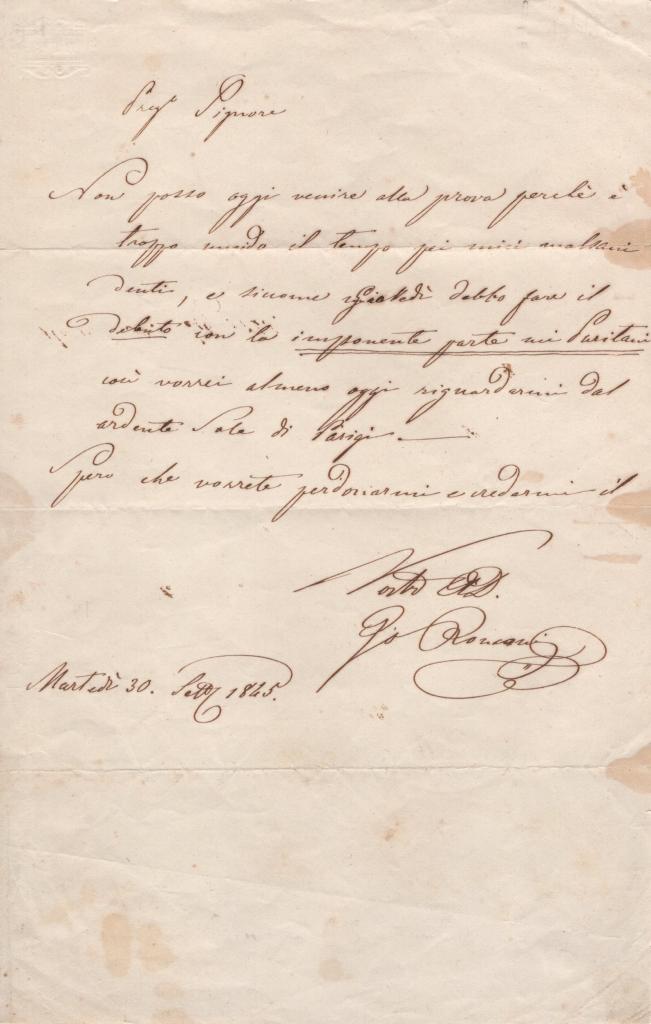 Preg.º Signore
Non posso oggi venire alla prova perchè è
troppo umido il tempo pei miei malsani
denti, e siccome Giovedì debbo fare il
debutto con la imponente parte nei Puritani
così vorrei almeno oggi riguardarmi dal
ardente Sole di Parigi. —
Spero che vorrete perdonarmi e credermi il
Vostro
Gio Ronconi
Martedì 30. Sett 1845.